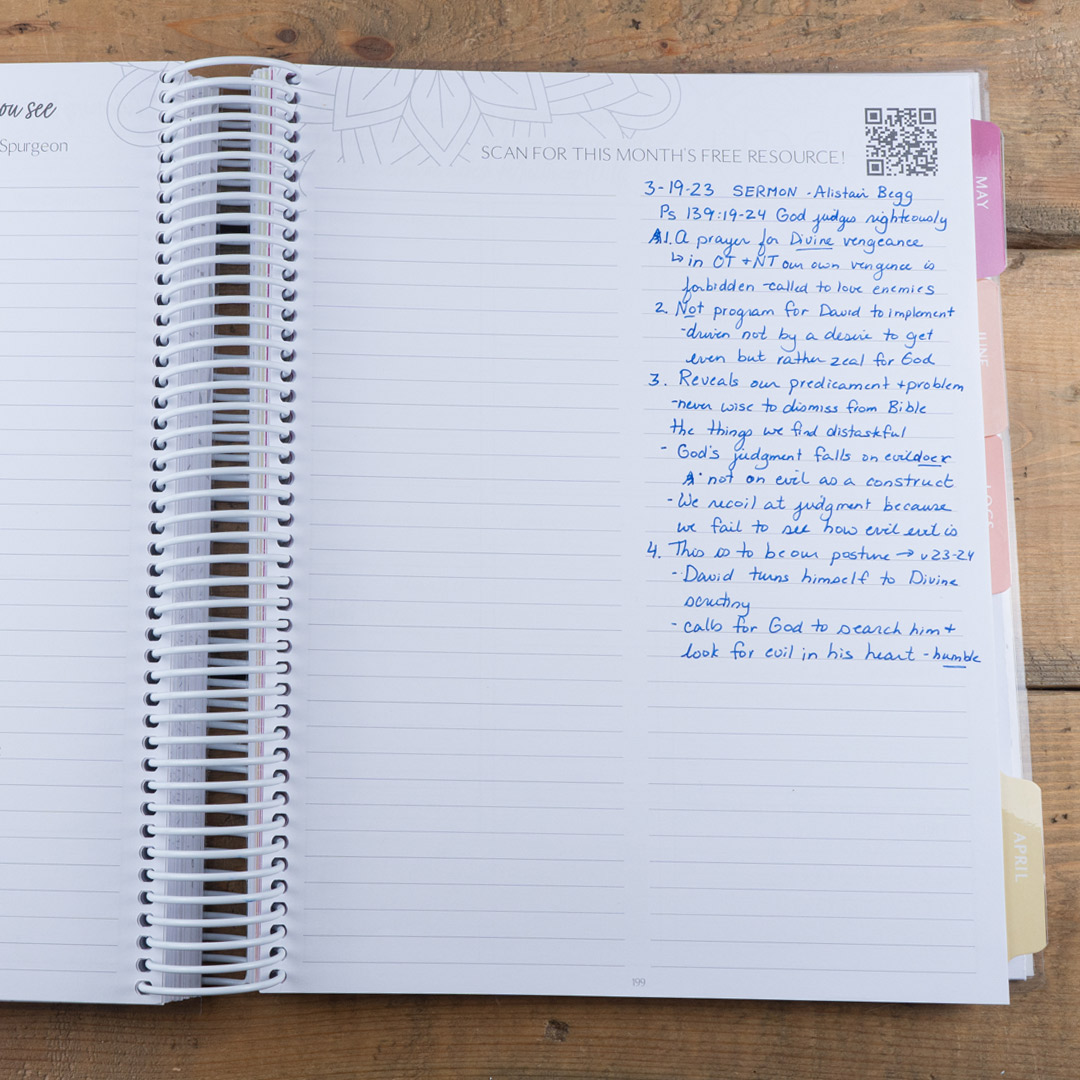 ou see
Spurgeon
SCAN FOR THIS MONTH'S FREE RESOURCE!
3-19-23 SERMON - Alistair Begg
Ps 139:19-24 God judges righteously
1. A prayer for Divine vengeance
↳ in OT + NT our own vengence is
forbidden - called to love enemies
2. Not program for David to implement
- driven not by a desire to get
even but rather zeal for God
3. Reveals our predicament + problem
- never wise to dismiss from Bible
the things we find distasteful
- God's judgment falls on evildoer
not on evil as a construct
- We recoil at judgment because
we fail to see how evil evil is
4. This is to be our posture → v 23-24
- David turns himself to Divine
scrutiny
- calls for God to search him +
look for evil in his heart - humble
199
MAY
JUNE
APRIL